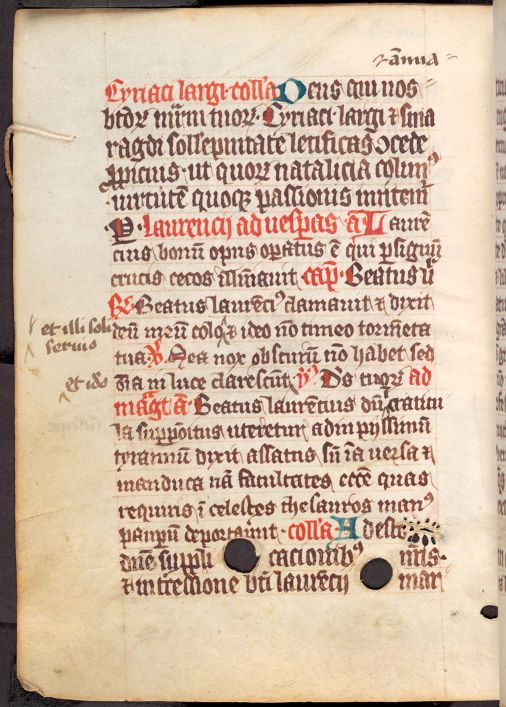 Cyriaci largi · coll'a Deus qui nos
btōꝝ mr̄m tuoꝝ · Cyriaci largi ⁊ sma
ragdi sollēpnitate letificas ꝯcede
ꝓpicius · ut quoꝝ natalicia colim᷒
uirtutē quoqꝫ passionis imitem̄
Laurencij ad uesp̄as ā Lauren
cius bonū opus oꝑatus ē qui ꝑ signum
crucis cecos illūīauit cap̄ · Beatus
Beatus laurēci᷒ clamauit ⁊ dixit
deū meū colo ⁊ ideo nō timeo torm̄eta
et illi soli
seruio
tua · Mea nox obscurū nō habet sed
et ideo
oīa in luce clarescūt ad
maḡt ā · Beatus laurēcius dū craticu
la suꝑpoitus ureretur ad impijssimū
tyrannū dixit assatus sū iā uersa ⁊
manduca nā facultates ecc̄e quas
requiris ī celestes thesauros man᷒
pauꝑum deportauer̄t · coll'a Adesto
dn̄e suppli cacionib᷒ nr̄is ·
⁊ int̄cessione bt̄i laurēcij mar